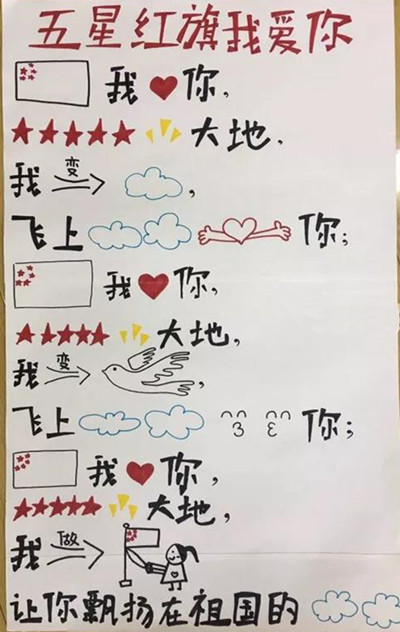 五星红旗我爱你
我你,
大地,
我变,
飞上你;
我你,
大地,
我变,
飞上你;
我你,
大地,
我做
让你飘扬在祖国的